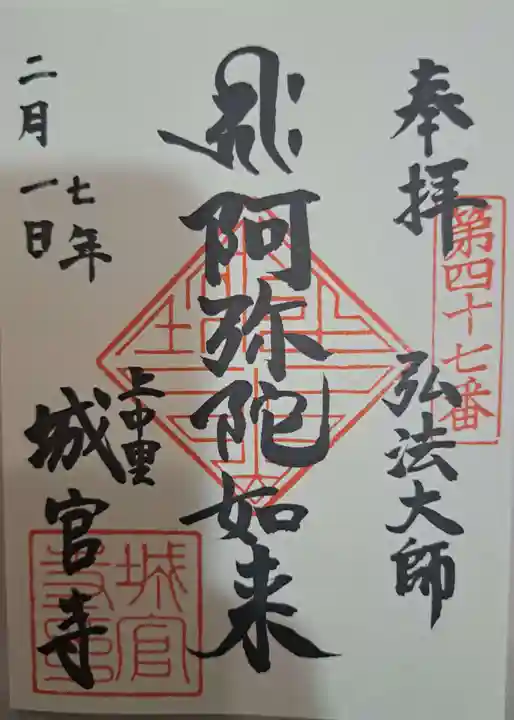 奉拝
第四十七番
弘法大師
阿弥陀如来
七年
二月一日
上中里
城官寺
城官